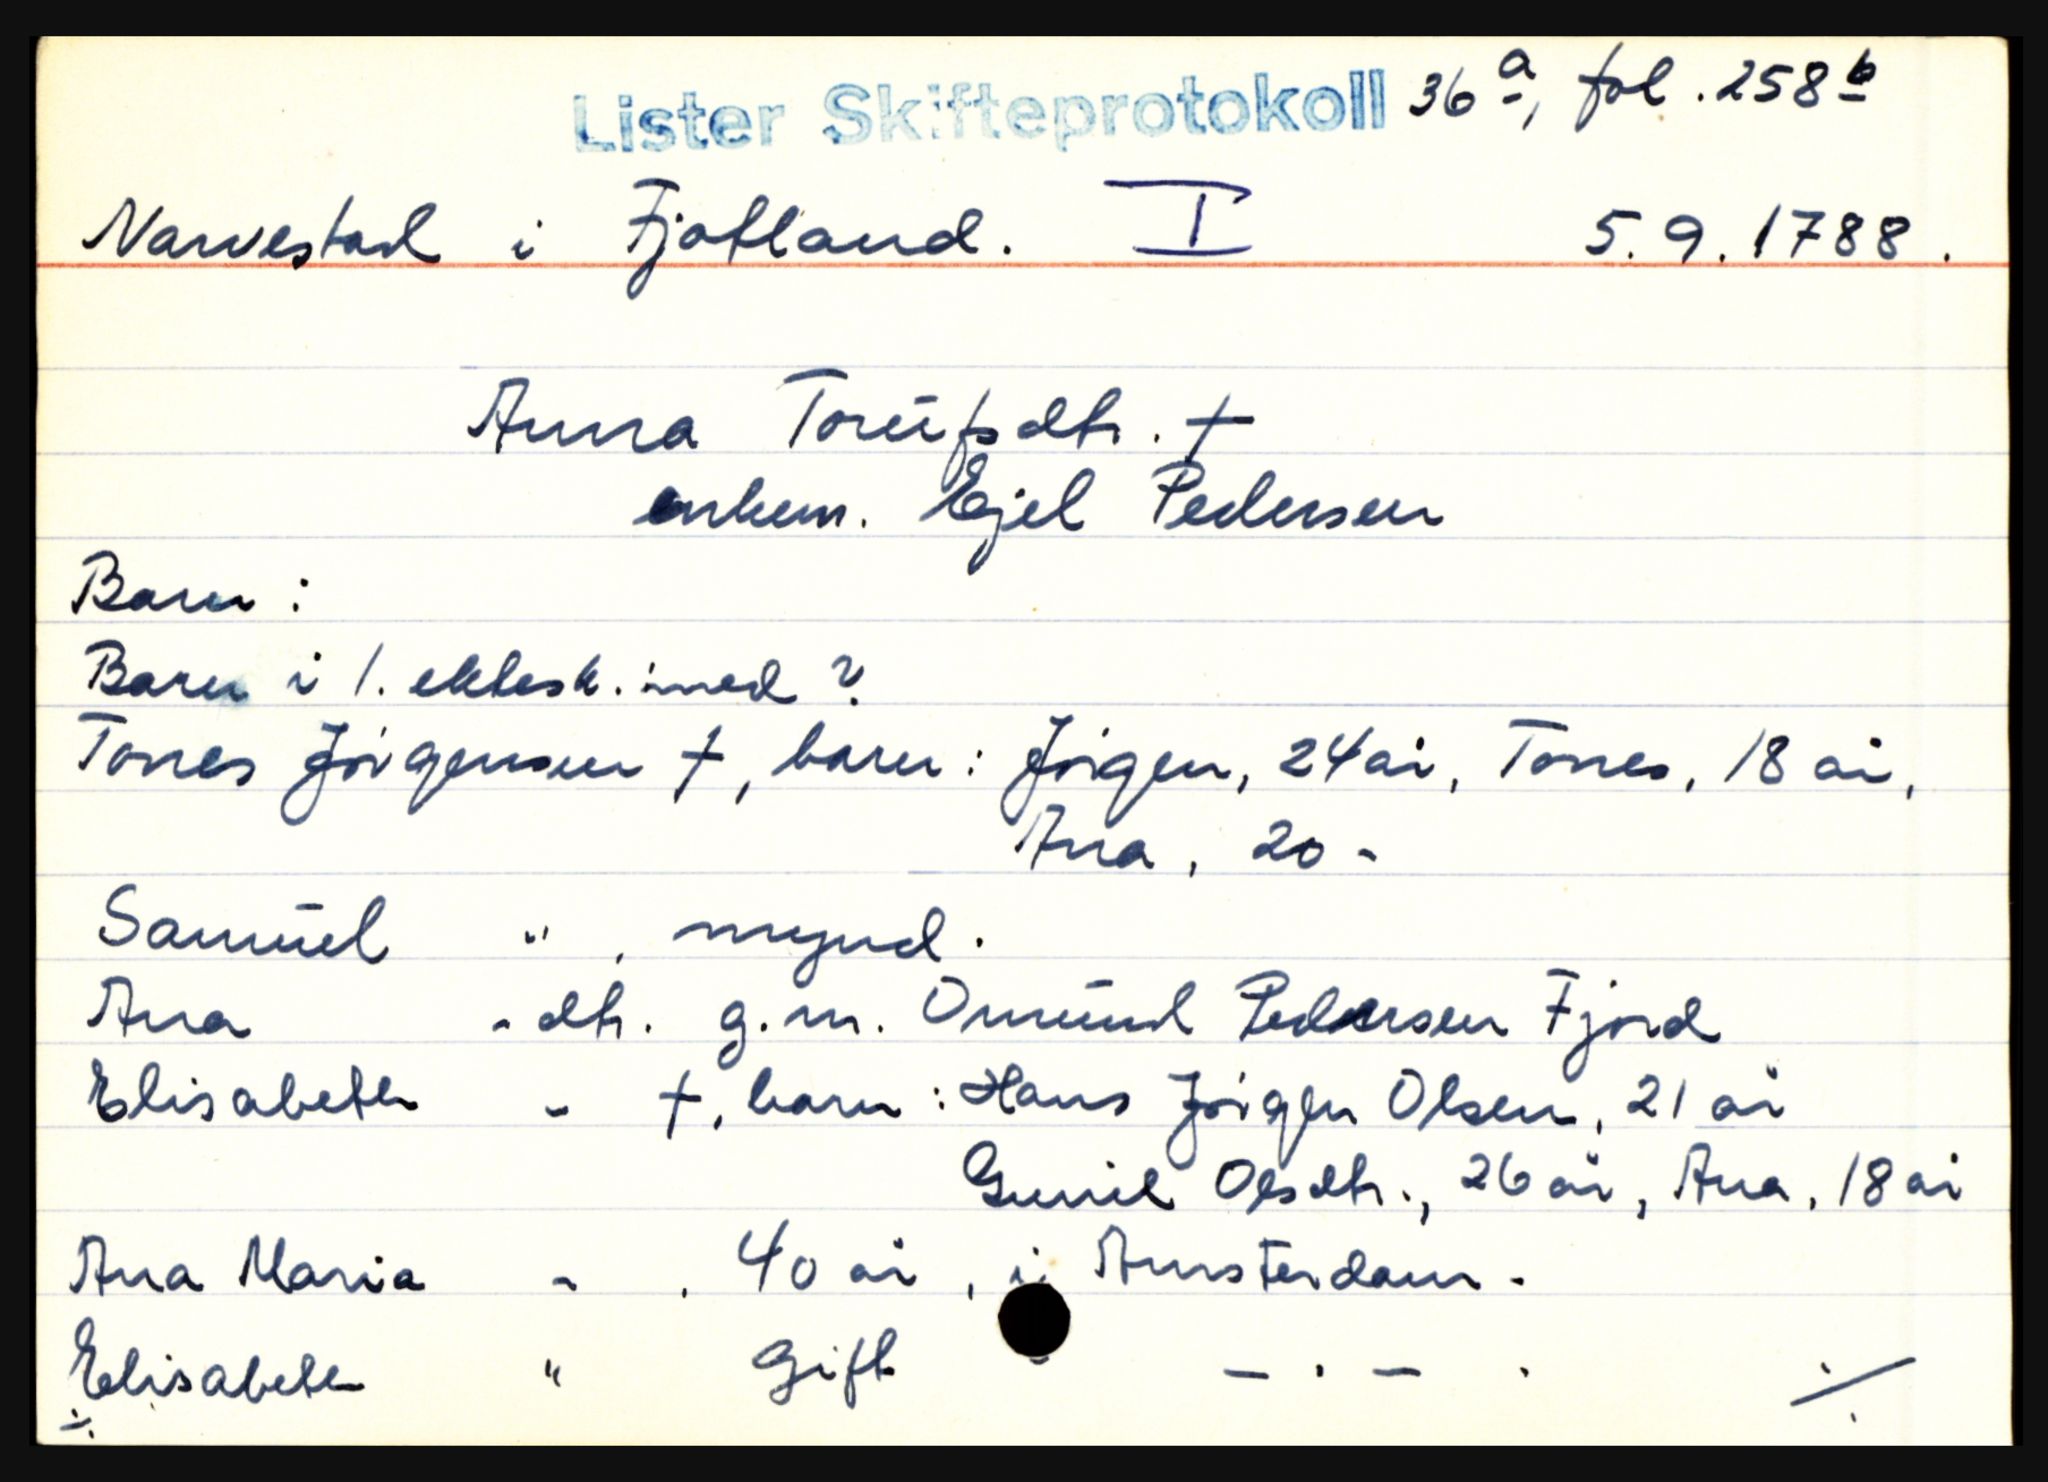 Lister Skifteprotokoll 36a, fol. 258b
Narvestad i Fjotland. I 5.9.1788.
Anna Torüfsdtr. †
enkem. Ejel Pedersen
Barn:
Barn i 1. ektesk. med ?
Tonnes Jörgensen †, barn: Jörgen, 24 år, Tonnes, 18 år,
Ana, 20 -
Samüel " , mynd.
Ana - dtr. g.m. Omünd Pedersen Fjord
Elisabeth - †, barn: Hans Jörgen Olsen, 21 år
Gunil Olsdtr., 26 år, Ana, 18 år
Ana Maria - , 40 år, i Amsterdam -
Elisabeth " Gift - - . - . ./.
./.